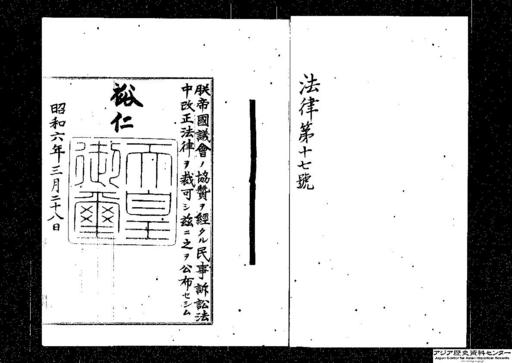 法律第十七號
朕帝國議會ノ協贊ヲ經タル民事訴訟法
中改正法律ヲ裁可シ茲ニ之ヲ公布セシム
裕仁
天皇
御璽
昭和六年三月二十八日
アジア歴史資料センター
Japan Center for Asian Historical Records